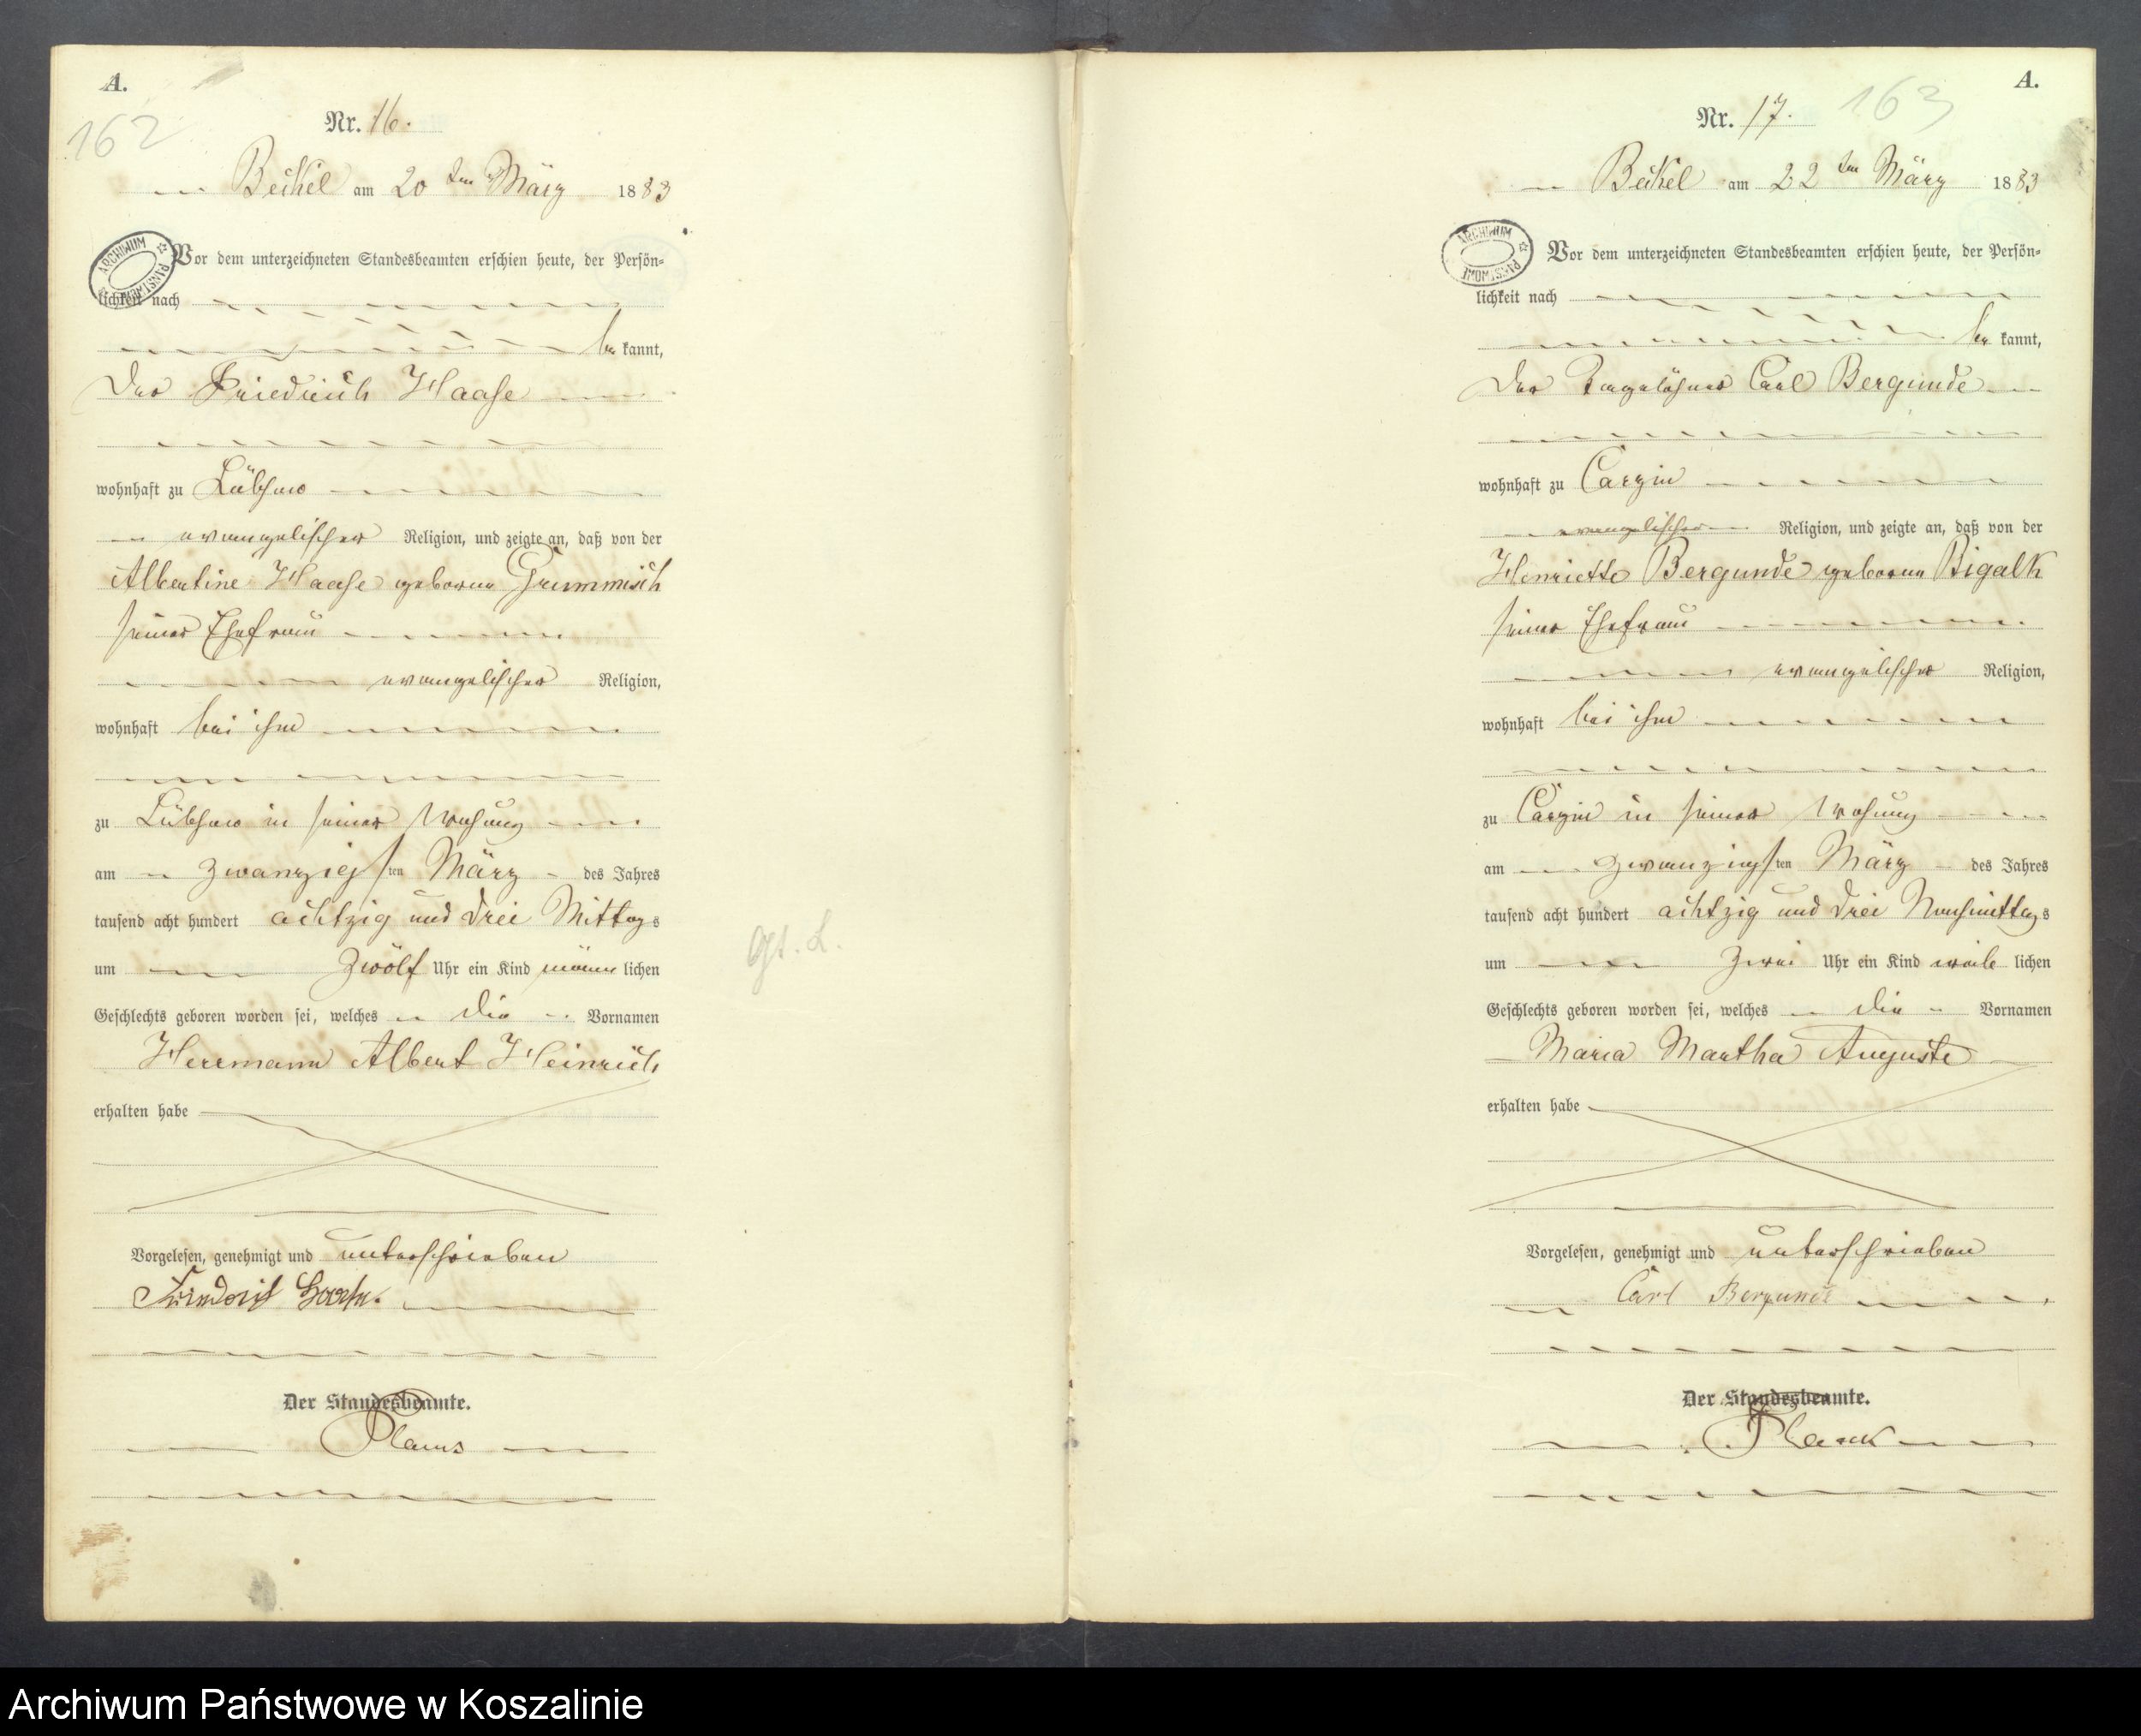 A.
162
Nr. 16.
Beckel am 20 ten März 1883
ARCHIWUM PAŃSTWOWE
Vor dem unterzeichneten Standesbeamten erschien heute, der Persön-
lichkeit nach
be kannt,
der Friedrich Haase
wohnhaft zu Lübzow
evangelischer Religion, und zeigte an, daß von der
Albertine Haase geborne Grummisch
seiner Ehefrau
evangelischer Religion,
wohnhaft bei ihm
zu Lübzow in seiner Wohung
am zwanzigsten März des Jahres
tausend acht hundert achtzig und drei Mittags
um zwölf Uhr ein Kind männ lichen
Geschlechts geboren worden sei, welches die Vornamen
Herrmann Albert Heinrich
erhalten habe
Vorgelesen, genehmigt und unterschrieben
Friedrich Haase.
Der Standesbeamte.
A.
163
Nr. 17.
Beckel am 22 ten März 1883
ARCHIWUM PAŃSTWOWE
Vor dem unterzeichneten Standesbeamten erschien heute, der Persön-
lichkeit nach
be kannt,
der Tagelöhner Carl Bergunde
wohnhaft zu Carzin
evangelischer Religion, und zeigte an, daß von der
Henriette Bergunde geborne Bigalk
seiner Ehefrau
evangelischer Religion,
wohnhaft bei ihm
zu Carzin in seiner Wohung
am zwanzigsten März des Jahres
tausend acht hundert achtzig und drei Nachmittags
um zwei Uhr ein Kind weib lichen
Geschlechts geboren worden sei, welches die Vornamen
Maria Martha Auguste
erhalten habe
Vorgelesen, genehmigt und unterschrieben
Carl Bergunde
Der Standesbeamte.
Archiwum Państwowe w Koszalinie